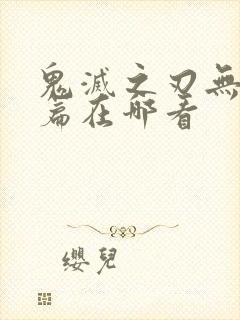 鬼滅之刃無
篇在哪看
纓兒